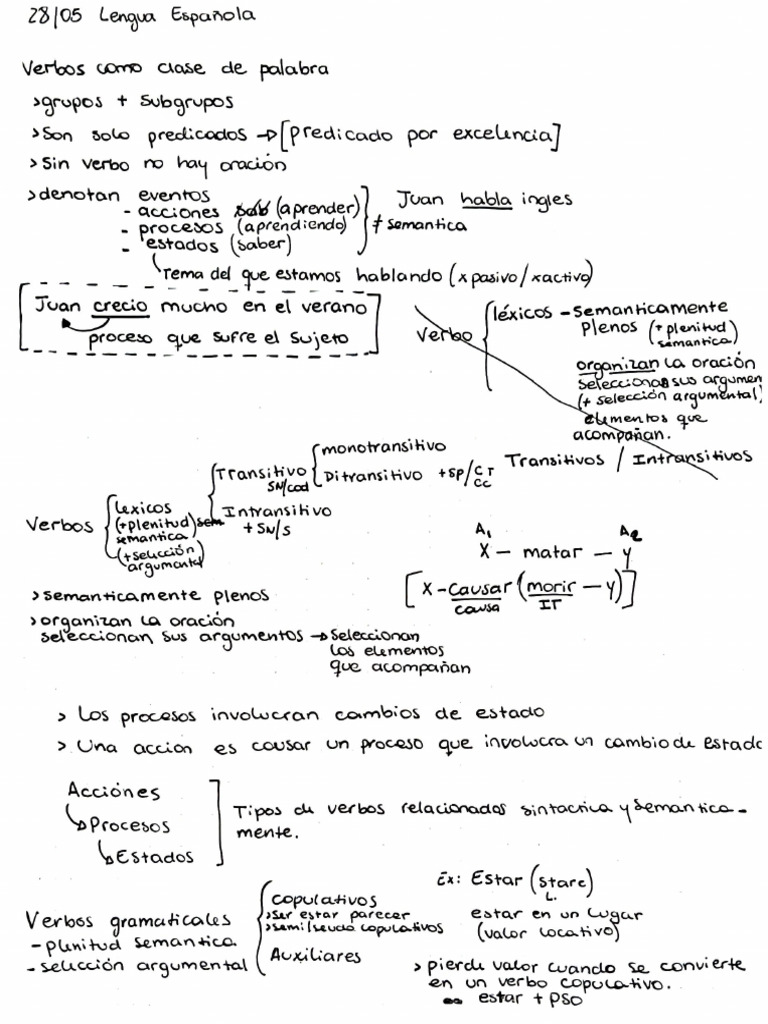 28/05 Lengua Española
Verbos como clase de palabra
>grupos + subgrupos
>Son solo predicados → [predicado por excelencia]
>Sin verbo no hay oración
>denotan eventos
- acciones (aprender)
- procesos (aprendiendo)
- estados (saber)
Juan habla ingles
≠ semantica
tema del que estamos hablando (x pasivo/xactivo)
Juan crecio mucho en el verano
proceso que sufre el sujeto
Verbo
léxicos - semanticamente
plenos (+plenitud
semantica)
organizan la oración
seleccionan sus argumen
(+ selección argumental)
elementos que
acompañan.
Transitivos / Intransitivos
Verbos
lexicos
(+plenitud) sem
semantica
(+selección)
argumental
Transitivo
SN/cod
monotransitivo
Ditransitivo +SP/CT
CC
Intransitivo
+ SN/S
A1 A2
X - matar - Y
[X - causar (morir - Y)]
causa IT
>semanticamente plenos
>organizan la oración
seleccionan sus argumentos → seleccionan
los elementos
que acompañan
> Los procesos involucran cambios de estado
> Una accion es causar un proceso que involucra un cambio de estado
Acciones
Procesos
Estados
Tipos de verbos relacionados sintactica y semantica-
mente.
Verbos gramaticales
-plenitud semantica
-selección argumental
Copulativos
>ser estar parecer
>semi/seudo copulativos
Auxiliares
Ex: Estar (stare)
L.
estar en un lugar
(valor locativo)
> pierde valor cuando se convierte
en un verbo copulativo.
estar + PSO